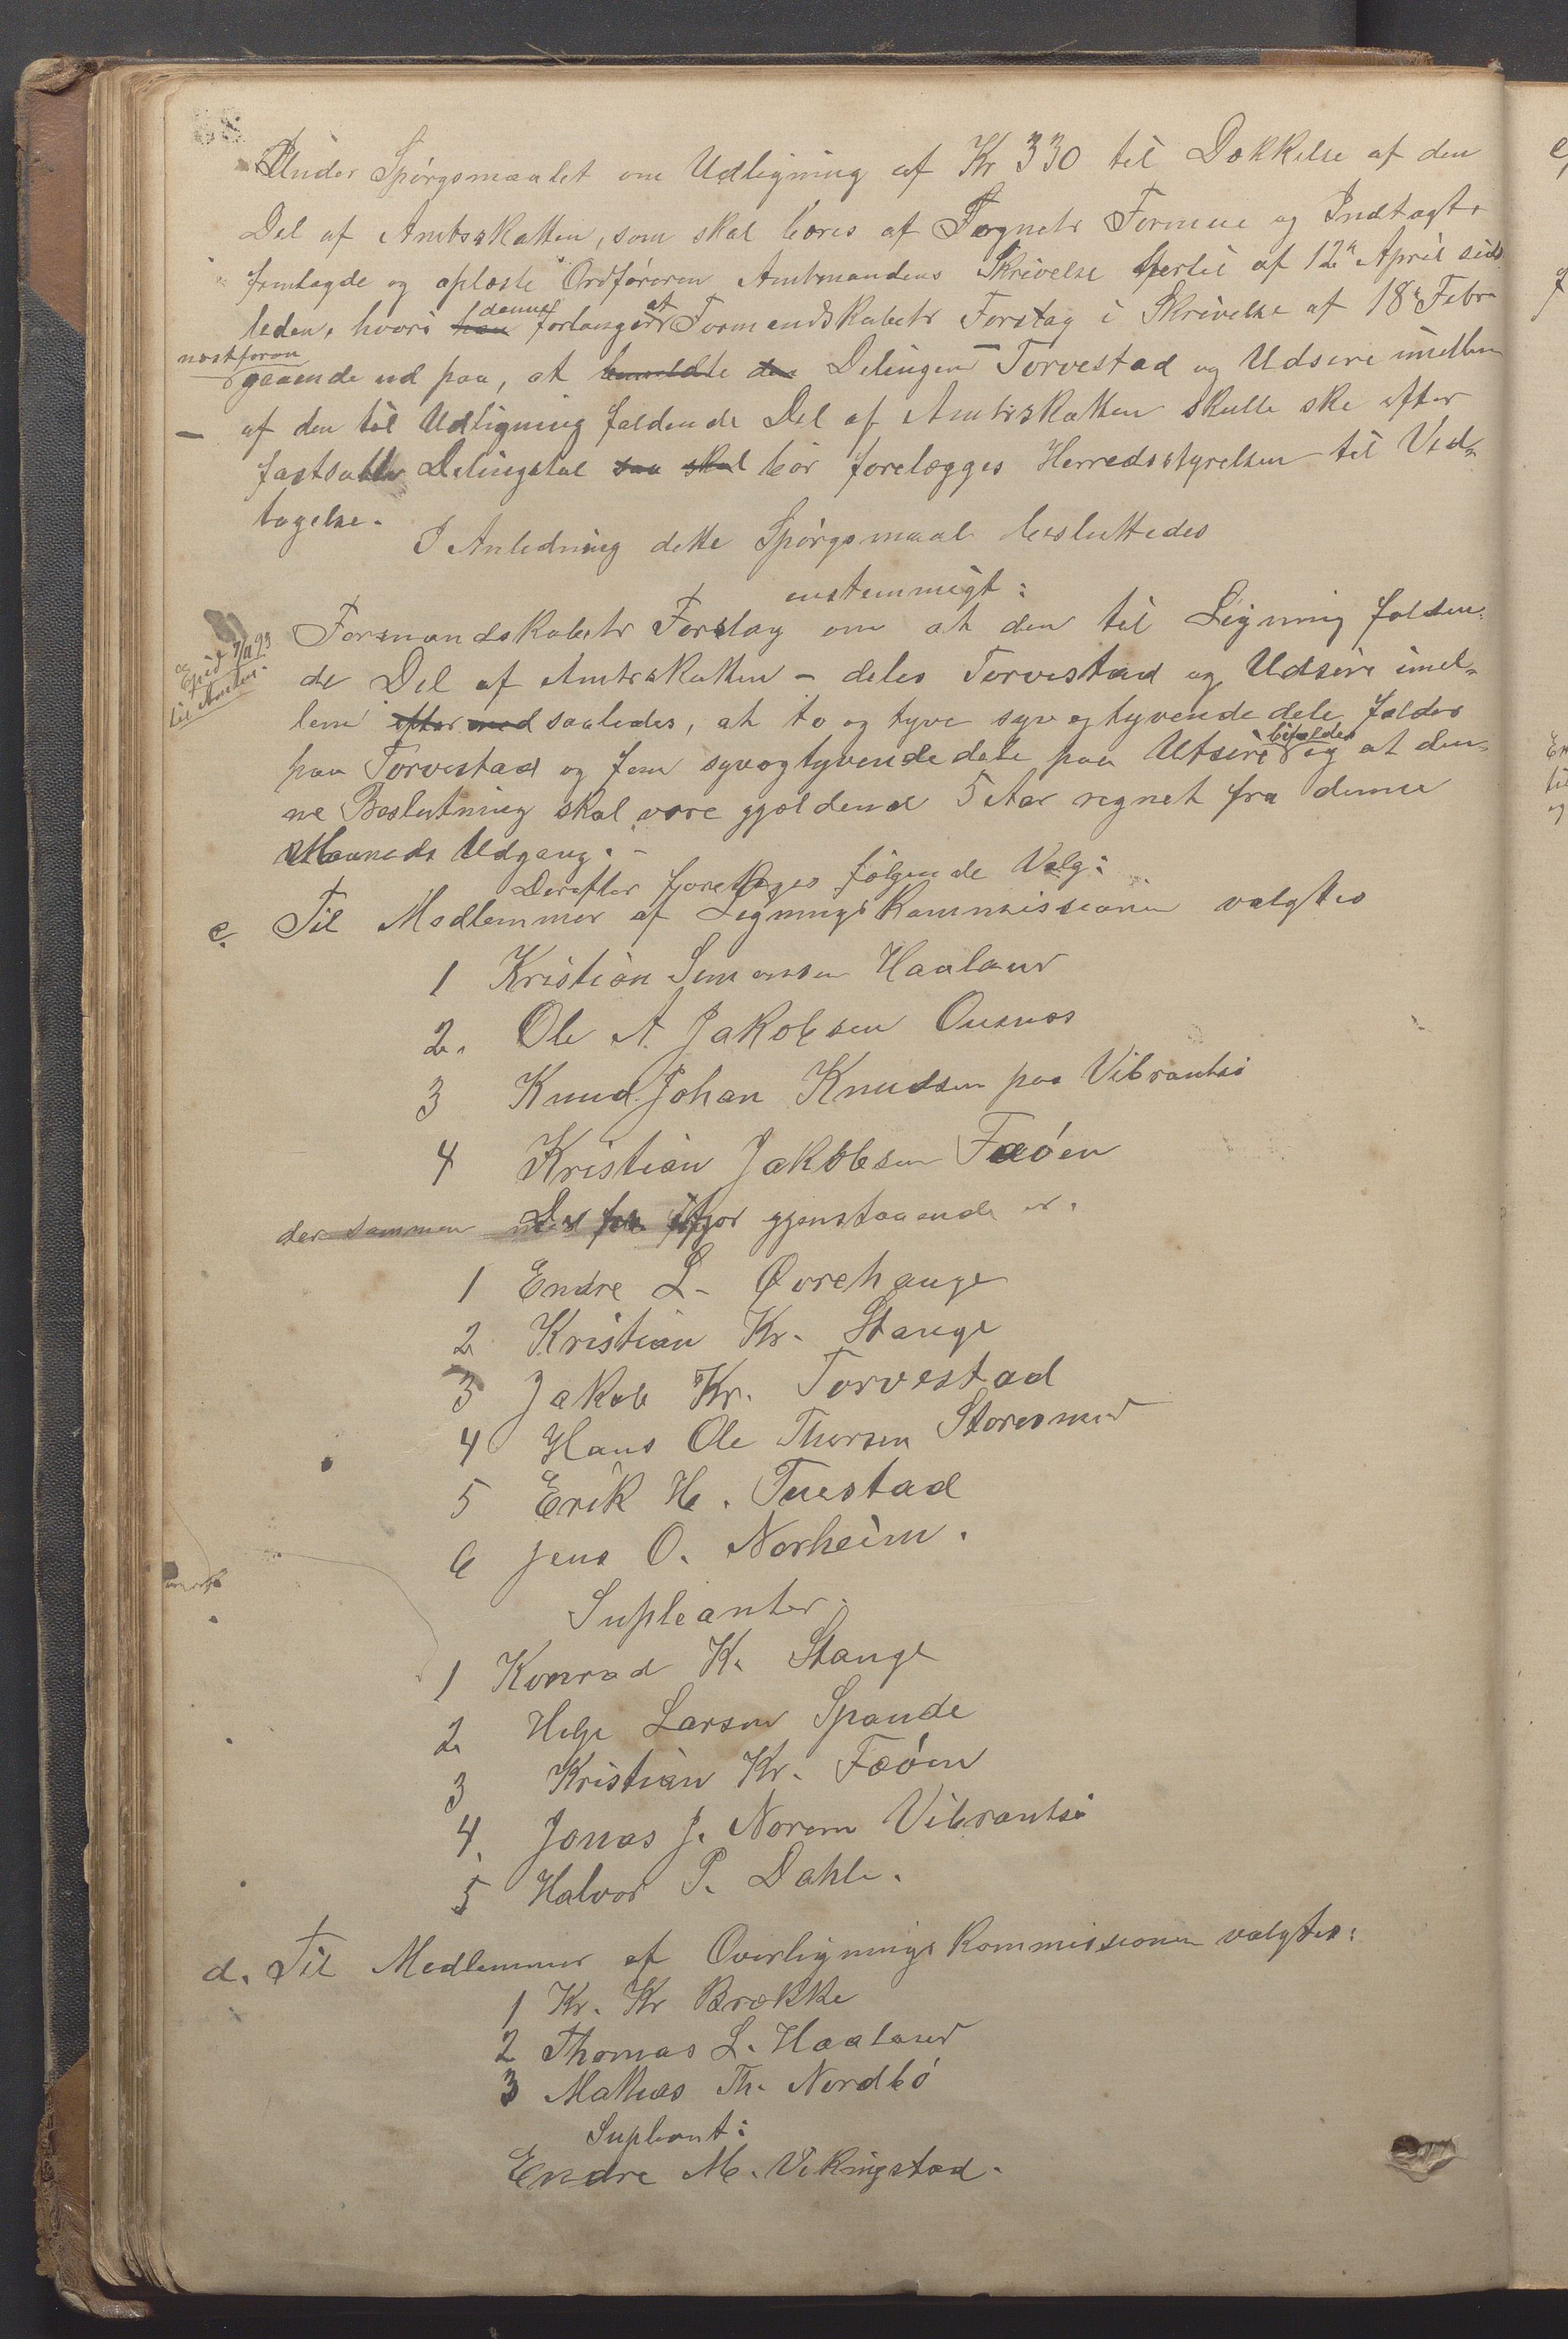 Under Spørgsmaalet om Udligning af Kr 330 til Dækkelse af den
Del af Amtsskatten, som skal bæres af Sognets Formue og Indtægt,
femlagde og oplæste Ordføreren Amtmandens Skrivelse hertil af 12te April sids
leden, hvori han denne forlanger at Formandskabets Forslag i Skrivelse af 18de Febr
næstforan
gaaende ud paa, at den Delingen Torvestad og Udsire imellem
af den til Udligning faldende Del af Amtsskatten skulle ske efter
fastsatte Delingstal saa skal bør forelægges Herredsstyrelsen til Ved-
tagelse.
I Anledning dette Spørgsmaal besluttedes
enstemmigt:
Formandskabets Forslag om at den til Ligning falden-
de Del af Amtsskatten - deles Torvestad og Udsire imel-
lem efter med saaledes, at to og tyve syv og tyvende dele falder
paa Torvestad og fem syvogtyvendedele paa Utsire bifaldes og at den-
ne Beslutning skal være gjældende 5 Aar regnet fra denne
Maaneds Udgang. -
Derefter foretoges følgende Valg:
c. Til Medlemmer af Ligningskommissionen valgtes
1 Kristian Simonsen Haaland
2. Ole A. Jakobsen Ousnæs
3 Knud Johan Knudsen paa Vibrantsø
4 Kristian Jakobsen Fæøen
der sammen med fra ifjor gjenstaaende er.
1 Endre L. Øvrehauge
2 Kristian Kr. Stange
3 Jakob Kr. Torvestad
4 Hans Ole Thorsen Storesund
5 Erik H. Tuestad
6 Jens O. Norheim.
Supleanter.
1 Konrad K. Stange
2 Helge Larsen Spande
3 Kristian Kr. Fæøen
4. Jonas J. Norem Vibrantsø
5 Halvor P. Dahle.
d. Til Medlemmer af Overligningskommissionen valgtes:
1 Kr. Kr Brække
2 Thomas L. Haaland
3 Mathias Th. Nordbø
Supleant:
Endre M. Vikingstad.